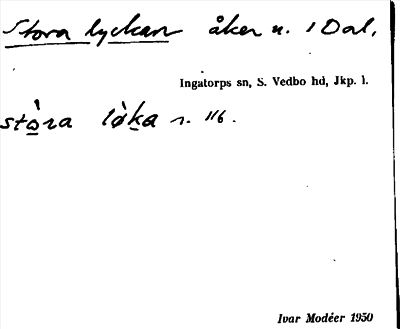 Stora lyckan åker n. 1 Dal.
Ingatorps sn, S. Vedbo hd, Jkp. l.
stò̲ra lø̀k̲a n. 116.
Ivar Modéer 1950